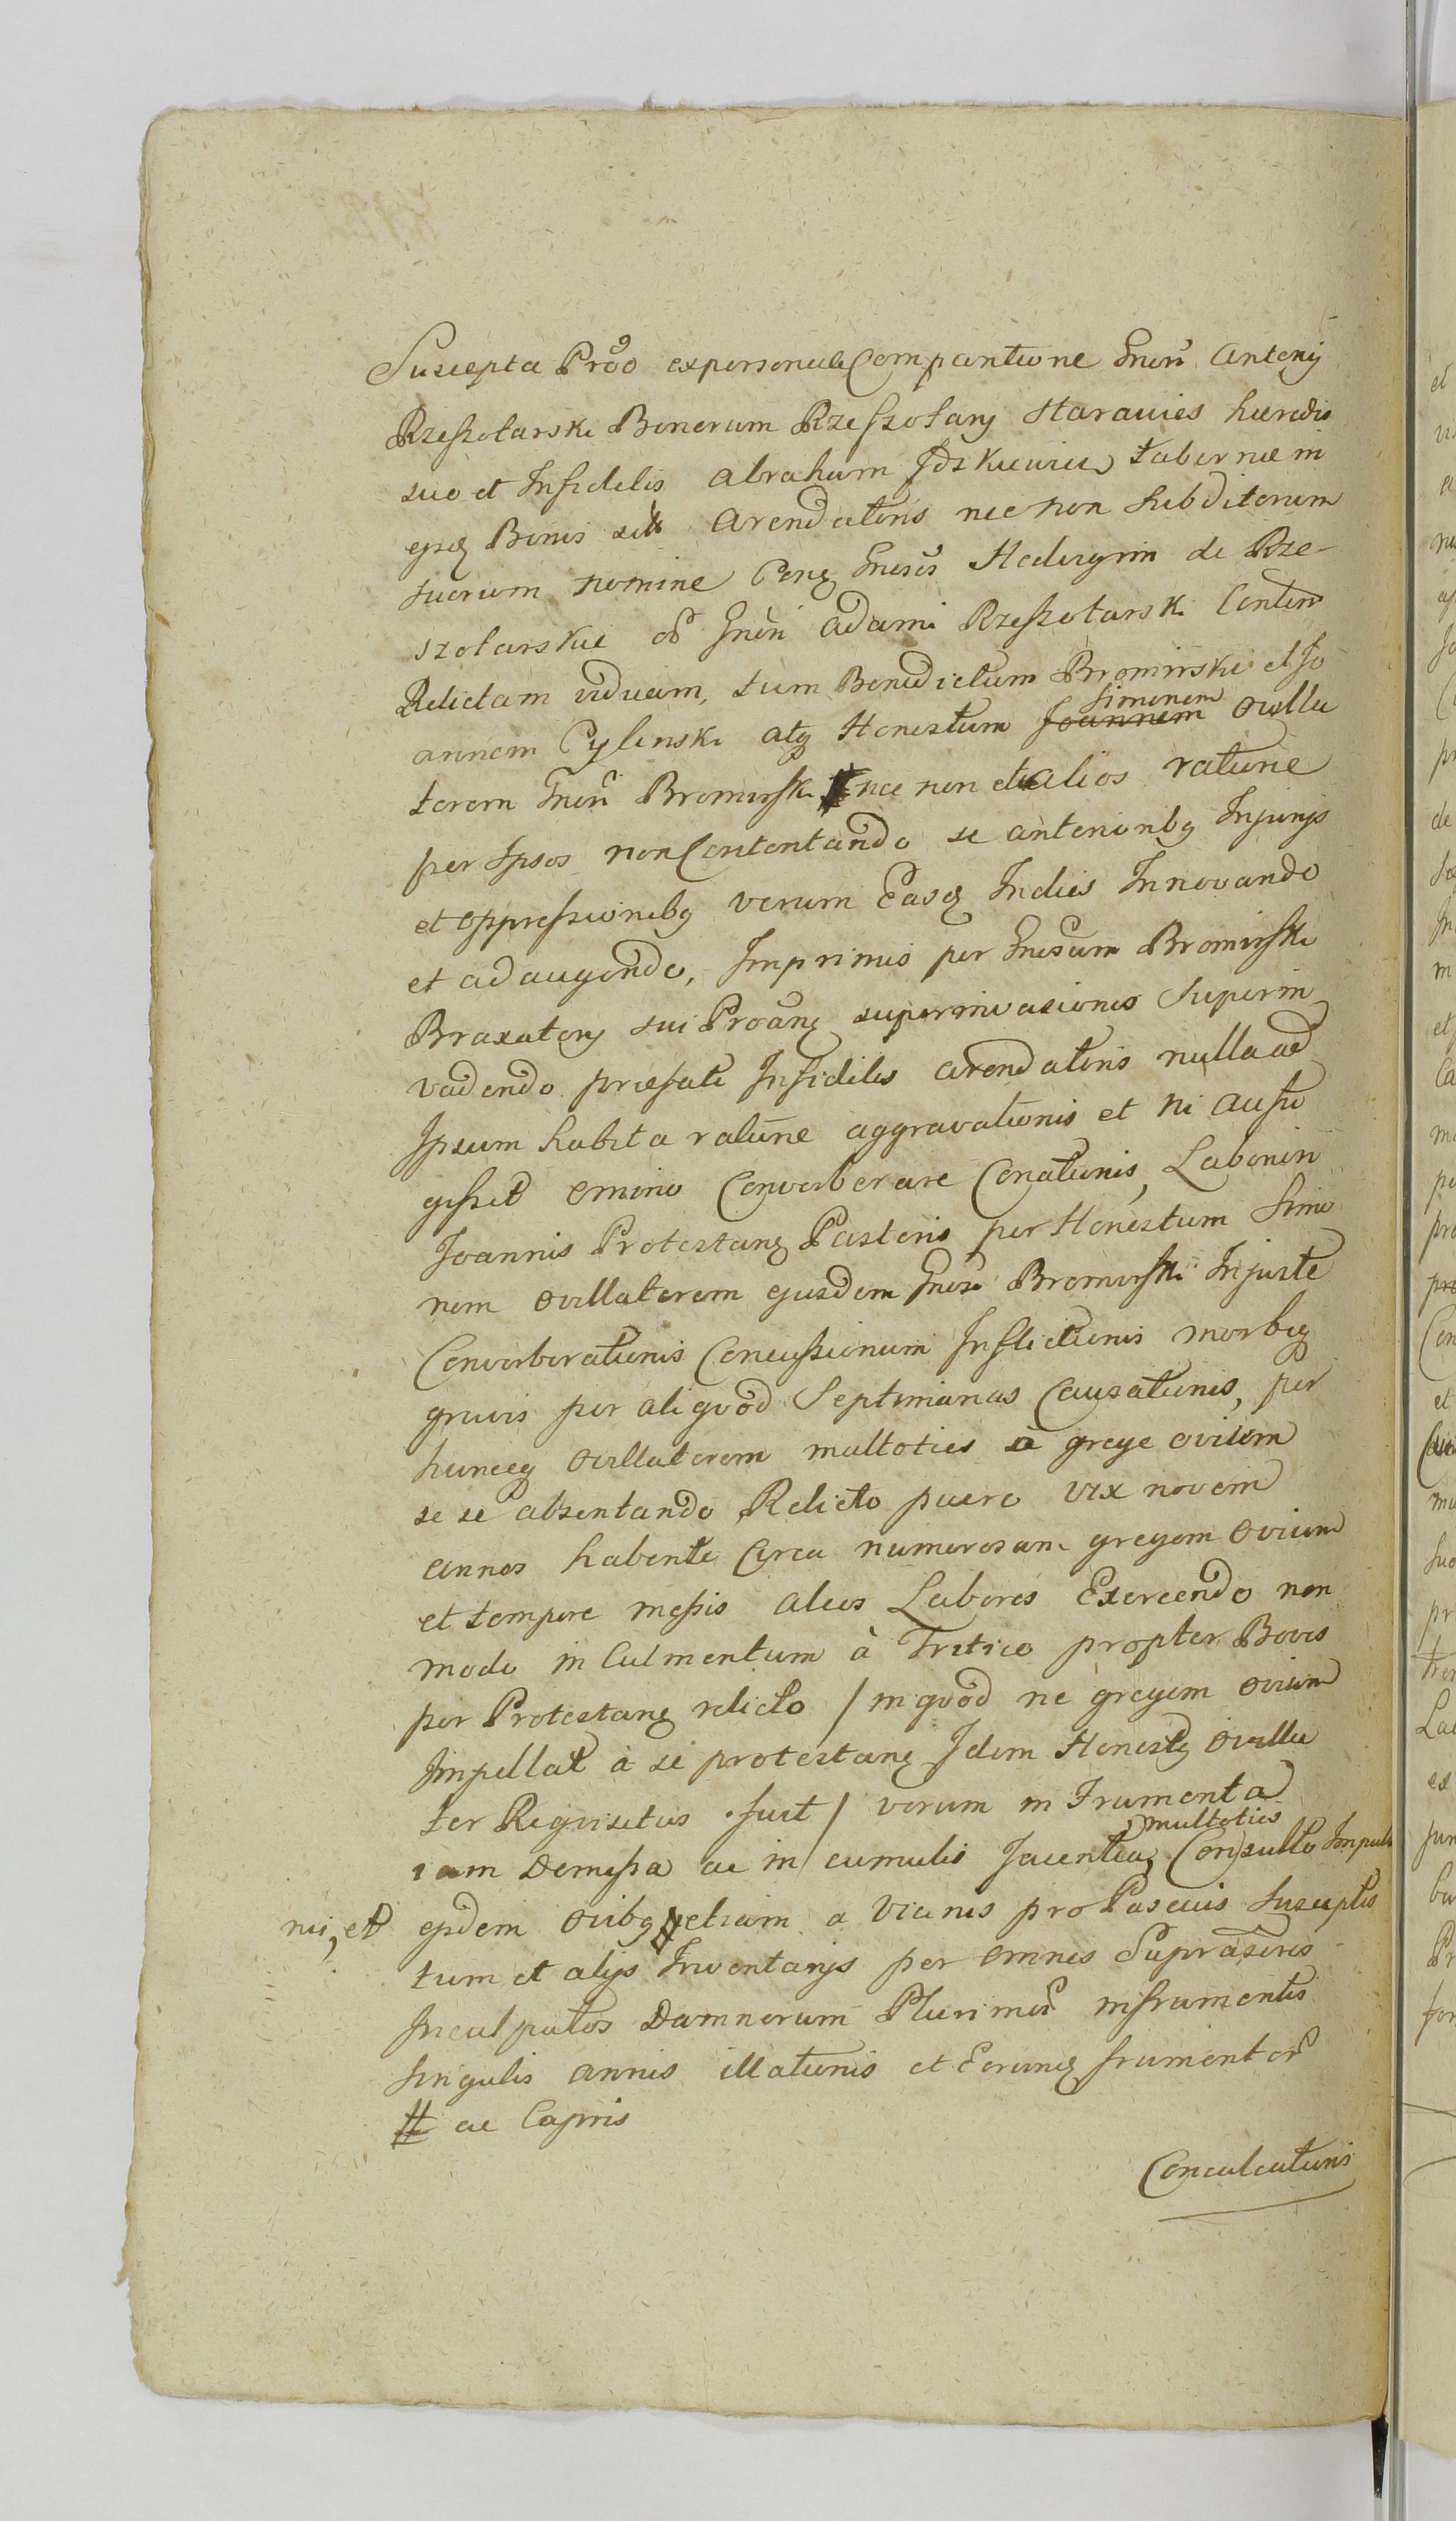 Suscepta Proõ ex personali Comparitione Gnēri Antonij
Rzeszotarski Bonorum Rzeszotary Starawies hæredis
suo et Infidelis Abraham Jdzkiewicz tabernæ in
ejsq Bonis sitæ Arendatoris nec non subditorum
suorum nomine Cerq Gnēsēs Hedvigim de Rze-
szotarskie ōs Gnēri Adami Rzeszotarski Contem
Relictam viduam, tum Benedictum Bromirski et Jo
annem Cylinski atq Honestum Joannem Simonem ovilla
torem Gnēri Bromirski nec non et alios ratione
per Ipsos non Contentando se anterioribq Injurijs
et oppressionibq verum Easq Indies Innovando
et adaugendo, Imprimis per Gnēsum Bromirski
Braxatorij sui Proãnq super invasiones superin
vadendo præfati Infidelis arendatoris nulla ad
Ipsum habita ratione aggravationis et ni aufu
gisset omnino Converberare Conationis, Laboriōsi
Joannis Protestanq Pastoris per Honestum Simo
nem ovillatorem ejusdem Gnēsi Bromirski Injuste
Converberationis Concussionum Inflictionis morbiq
gravis per aliqvod Septimanas Causationis, per
huncq ovillatorem multoties a grege ovium
se se absentando Relicto puero vix novem
annos habente Circa numerosam gregem ovium
et tempore messis alios Labores Exercendo non
modo in Culmentum à Tritico propter Boves
per Protestanq relicto / in qvod ne gregem ovium
Impellat à se protestanq Idem Honestq ovilla
tor Reqvisitus fuit / verum in Frumenta
iam Demessa ac in cumulis Jacentia, multoties Consulto Impuls
nis, et ejsdem ovibq # etiam a vicinis pro Pascuis Susceptis
tum et alijs Inventarijs per omnes Suprascrīs
Inculpatos Damnorum Plurimor in frumentis
singulis annis illationis et Eorunq frumentor
# ac Capris
Conculcationis